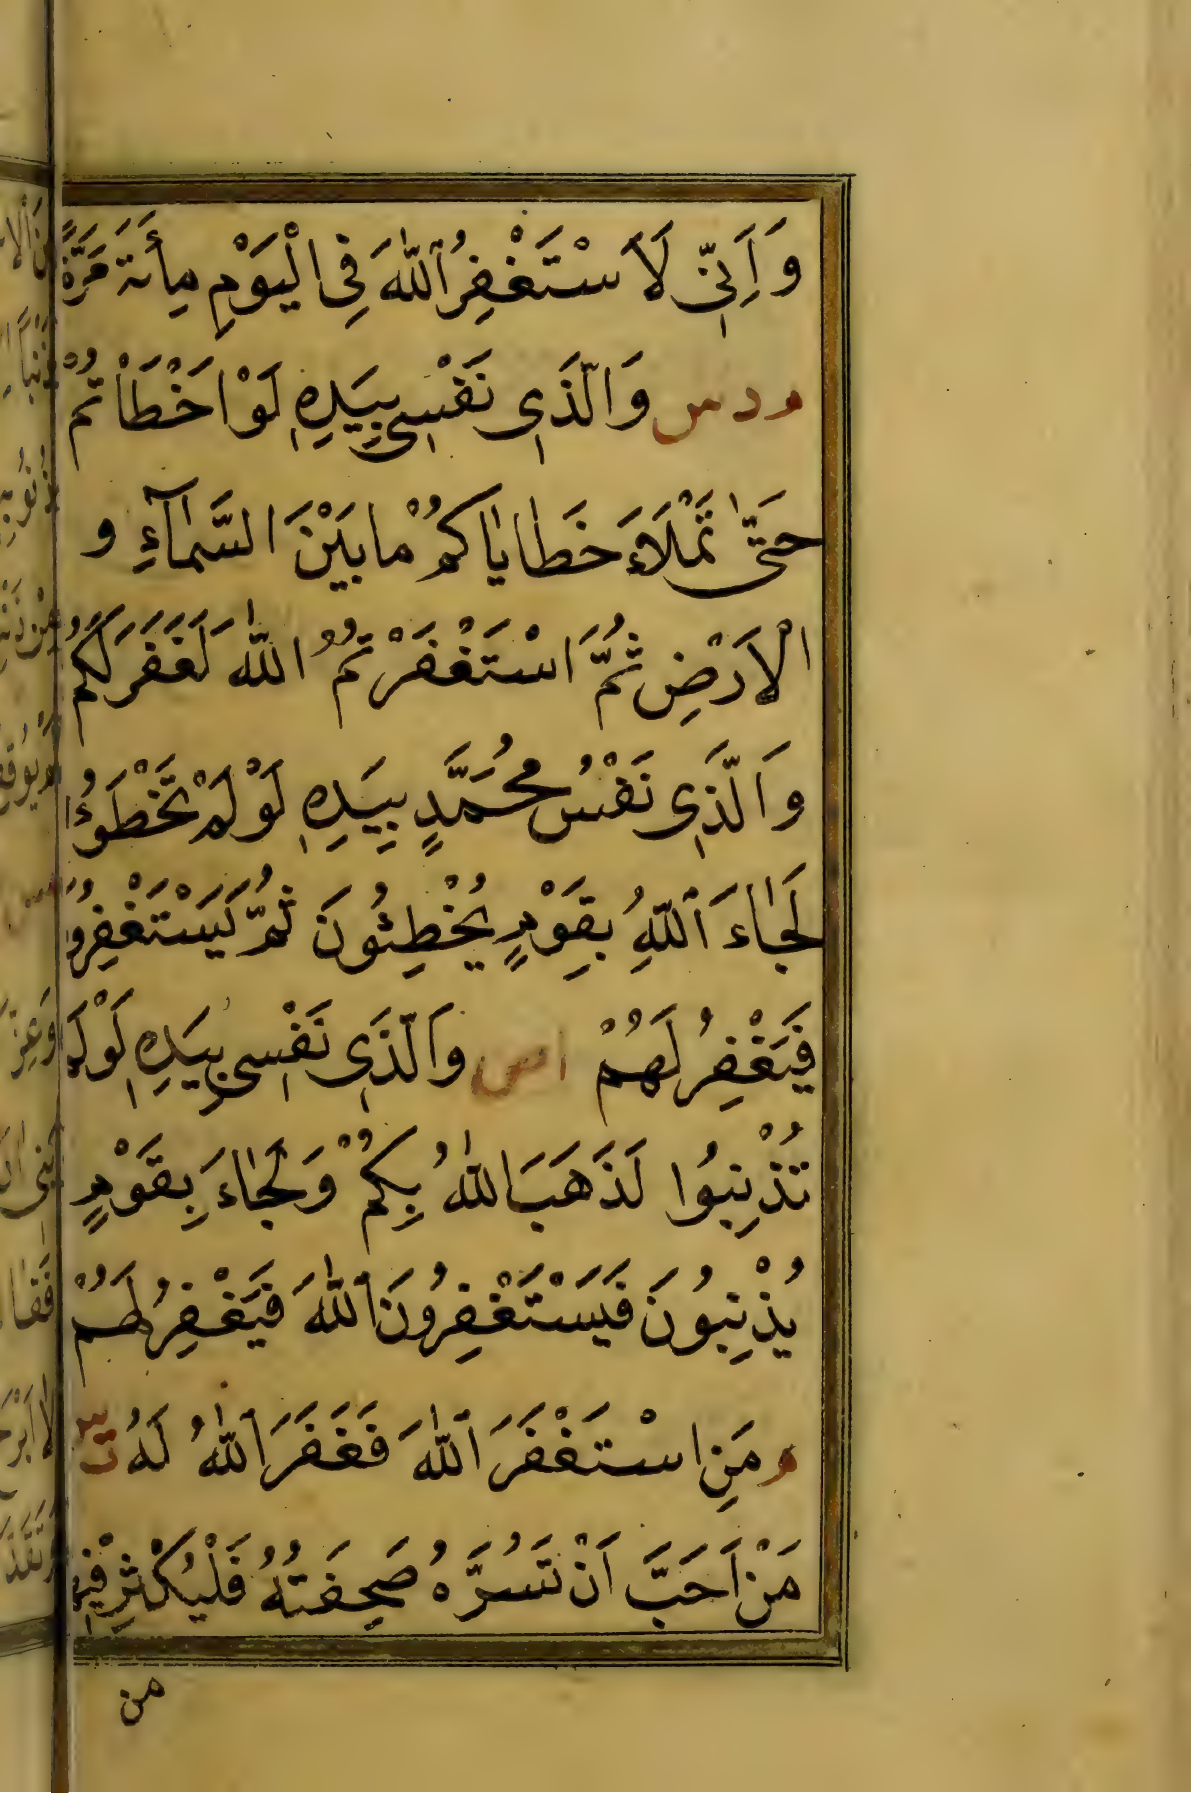 وَاَِنّىٖ لَاَسْتَغْفِرُ ٱللّٰهَ فِى الْيَوْمِ مِأَتَةَ مَرَّةٍ
م د س وَالَّذٖى نَفْسٖى بِيَدِهٖ لَوْ اَخْطَاْتُمْ
حَتّٰى تَمْلَاَءَ خَطٰايٰاكُمْ مٰا بَيْنَ السَّمٰآءِ و
الْاَرْضِ ثُمَّ اسْتَغْفَرْتُمُ اللّٰهَ لَغَفَرَ لَكُمْ
وَالَّذٖى نَفْسُ مُحَمَّدٍ بِيَدِهٖ لَوْ لَمْ تَخْطَؤُا
لَجٰاءَ ٱللّٰهُ بِقَوْمٍ يُخْطِئُونَ ثُمَّ يَسْتَغْفِرُو
فَيَغْفِرُ لَهُمْ اس وَالَّذٖى نَفْسٖى بِيَدِهٖ لَوْ لَمْ
تُذْنِبُوا لَذَهَبَ اللّٰهُ بِكُمْ وَلَجٰاءَ بِقَوْمٍ
يُذْنِبُونَ فَيَسْتَغْفِرُونَ اللّٰهَ فَيَغْفِرُ لَهُمْ
م وَمَنِ اسْتَغْفَرَ ٱللّٰهَ فَغَفَرَ ٱللّٰهُ لَهُ ت س
مَنْ اَحَبَّ اَنْ تَسُرَّهُ صَحٖيفَتُهُ فَلْيُكْثِرْ فٖيهٰ
من